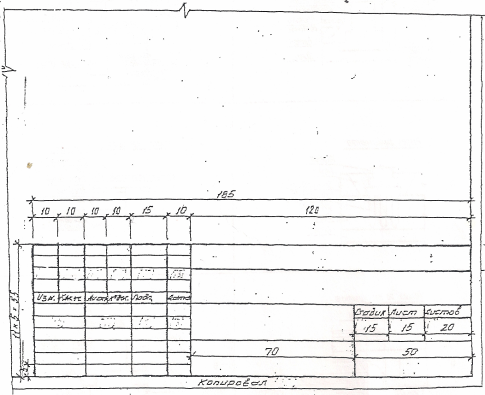 185
10 10 10 10 15 10 120
Изм. Кол.уч Лист №док. Подп. Дата
Стадия Лист Листов
15 15 20
70 50
11 x 5 = 55
5
Копировал